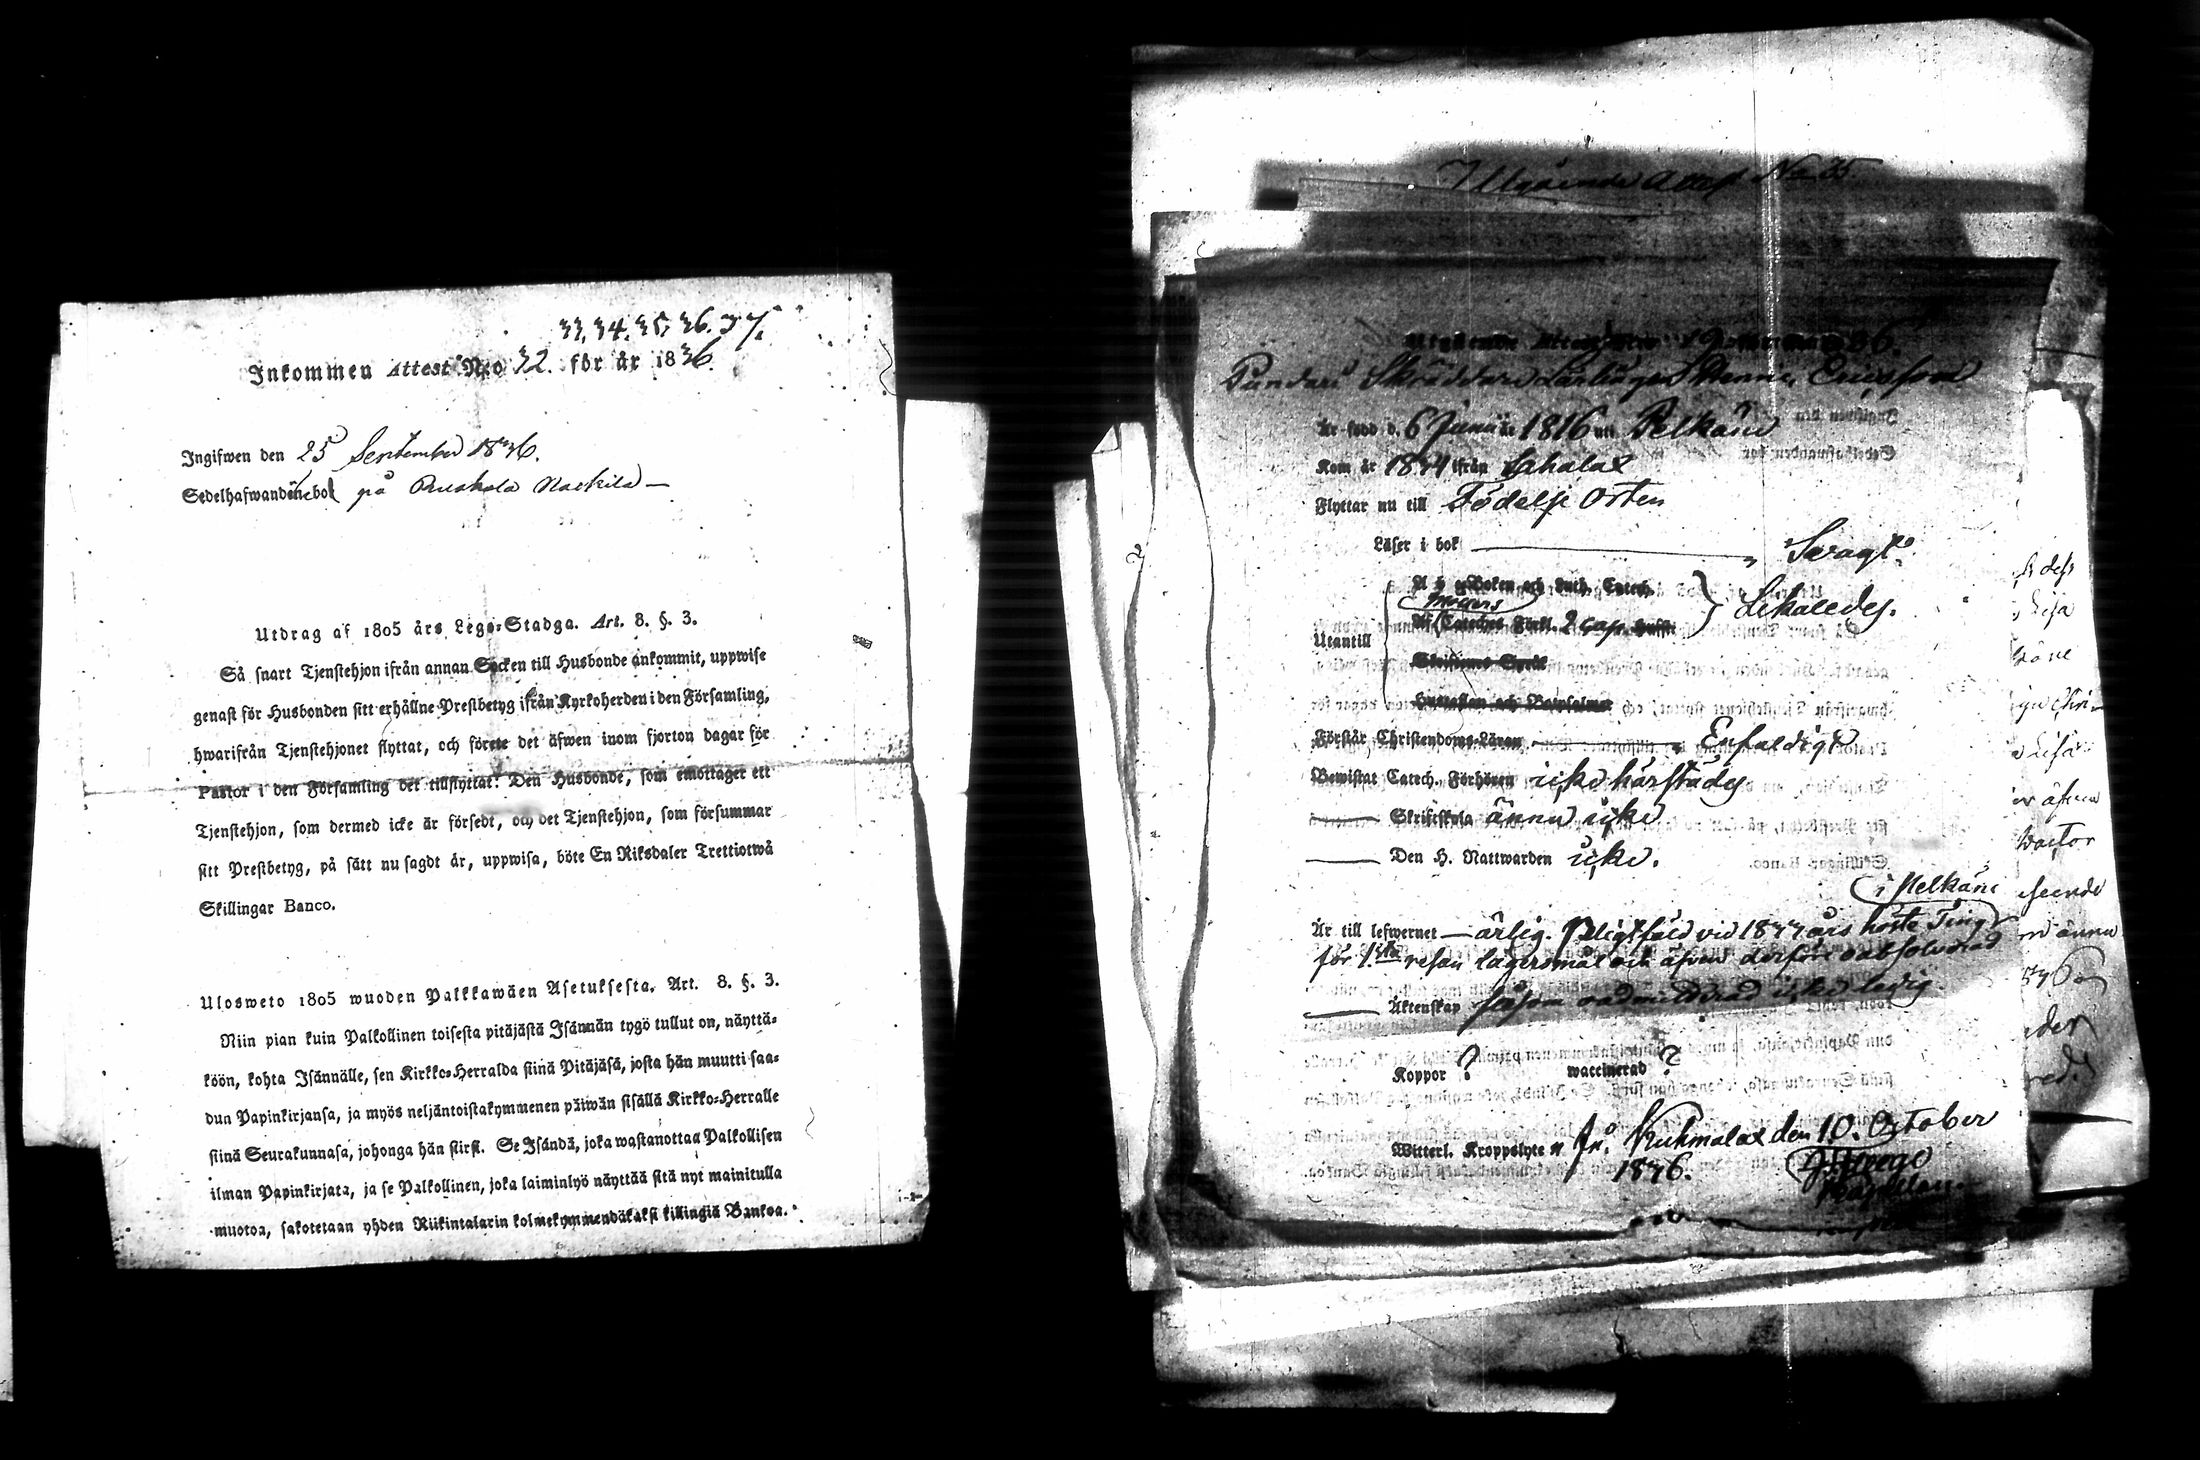 33, 34. 35, 36. 37.
Inkommen Attest N:o 32. för år 1836.
Ingifwen den 25 September 1836.
Sedelhafwanden bor på Ruokola Nackila —
Utdrag af 1805 års Lego-Stadga. Art. 8. §. 3.
Så snart Tjenstehjon ifrån annan Socken till Husbonde ankommit, uppwise
genast för Husbonden sitt erhållne Prestbetyg ifrån Kyrkoherden i den Församling,
hwarifrån Tjenstehjonet flyttat, och förete det äfwen inom fjorton dagar för
Pastor i den Församling det tillflyttat. Den Husbonde, som emottager ett
Tjenstehjon, som dermed icke är försedt, och det Tjenstehjon, som försummar
sitt Prestbetyg, på sätt nu sagdt är, uppwisa, böte En Riksdaler Trettiotwå
Skillingar Banco.
Ulosweto 1805 wuoden Palkkawäen Asetuksesta. Art. 8. §. 3.
Niin pian kuin Palkollinen toisesta pitäjästä Isännän tygö tullut on, näyttä-
köön, kohta Isännälle, sen Kirkko-Herralda siinä Pitäjäsä, josta hän muutti saa-
dun Papinkirjansa, ja myös neljäntoistakymmenen päiwän sisällä Kirkko-Herralle
siinä Seurakunnasa, johonga hän siirsi. Se Isändä, joka wastanottaa Palkollisen
ilman Papinkirjata, ja se Palkollinen, joka laiminlyö näyttää sitä nyt mainitulla
muotoa, sakotetaan yhden Riikintalarin kolmekymmendäkaksi killingiä Bankoa.
Utgående Attest No 35
Utgående Attest
Skräddare Lärlingen Ericsson
Är född d. 6 Junii år 1816 uti Pelkäne
Kom år 1834 ifrån Sahalax
Flyttar nu till Födelse Orten
Läser i bok — Svagt.
A b c Boken och Luth. Catech.
Utantill
Catechet. Förkl. 2 cap. Likaledes.
Skriftenes Språk
Hustaflan och Botpsalmer
Förstår Christendoms-Läran — Enfaldigt
Bewistat Catech. Förhören icke härstädes
— Skriftskola ännu icke
— Den H. Nattwarden icke.
i Pelkäne
Är till lefwernet — ärlig. Pligtfäld vid 1833 års höste Ting
för 1sta resan lägersmål och äfven derföre oabsolverad
— Äktenskap såsom oadmitterad icke ledig.
Koppor ? waccinerad ?
Witterl. Kroppslyte
Kuhmalax den 10. October
1836.